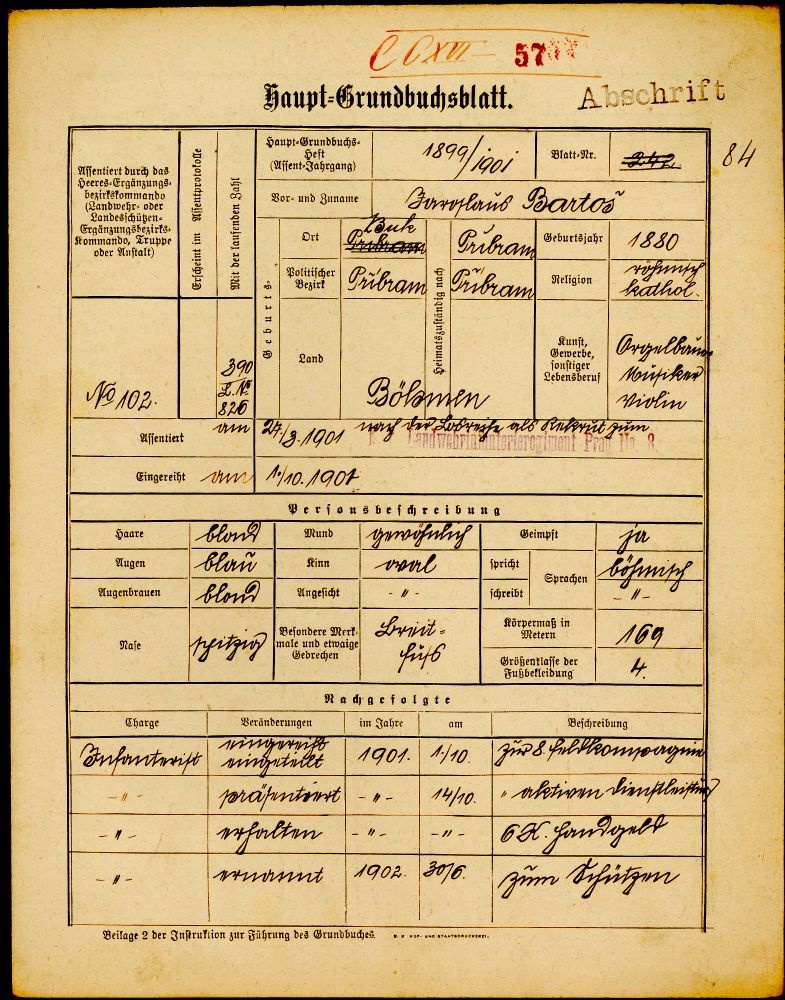 CCXVI 57
Haupt-Grundbuchsblatt.
Abschrift
Assentiert durch das
Heeres-Ergänzungs-
bezirkskommando
(Landwehr- oder
Landesschützen-
Ergänzungsbezirks-
Kommando, Truppe
oder Anstalt)
Erscheint im Assentprotokolle
Mit der laufenden Zahl
Haupt-Grundbuchs-
Heft
(Assent-Jahrgang)
1899/1901
Blatt-Nr.
242.
84
Vor- und Zuname
Jaroslaus Bartoš
Geburts-
Ort
Buk
Pribram
Heimatszuständig nach
Přibram
Geburtsjahr
1880
Politischer
Bezirk
Přibram
Přibram
Religion
röhmisch
kathol.
Land
Böhmen
Kunst,
Gewerbe,
sonstiger
Lebensberuf
Orgelbauer
Musiker
Violin
No 102.
390
L. No
826
Assentiert
am
27/3. 1901 nach der Losreihe als Rekrut zum
k. Landwehrinfanterieregiment Prag No. 8.
Eingereiht
am
1./10. 1901
Personsbeschreibung
Haare
blond
Mund
gewöhnlich
Geimpft
ja
Augen
blau
Kinn
oval
spricht
Sprachen
böhmisch
Augenbrauen
blond
Angesicht
- " -
schreibt
- " -
Nase
spitzig
Besondere Merk-
male und etwaige
Gebrechen
Breit-
fuß
Körpermaß in
Metern
169
Größenklasse der
Fußbekleidung
4.
Nachgefolgte
Charge
Veränderungen
im Jahre
am
Beschreibung
Infanterist
eingereiht
eingeteilt
1901.
1./10.
zur 8. Feldkompagnie
- " -
präsentiert
- " -
14/10.
" aktiven Dienstleistung
- " -
erhalten
- " -
- " -
6 K. Handgeld
- " -
ernannt
1902.
30/6.
zum Schützen
Beilage 2 der Instruktion zur Führung des Grundbuches.
K. K. HOF- UND STAATSDRUCKEREI.